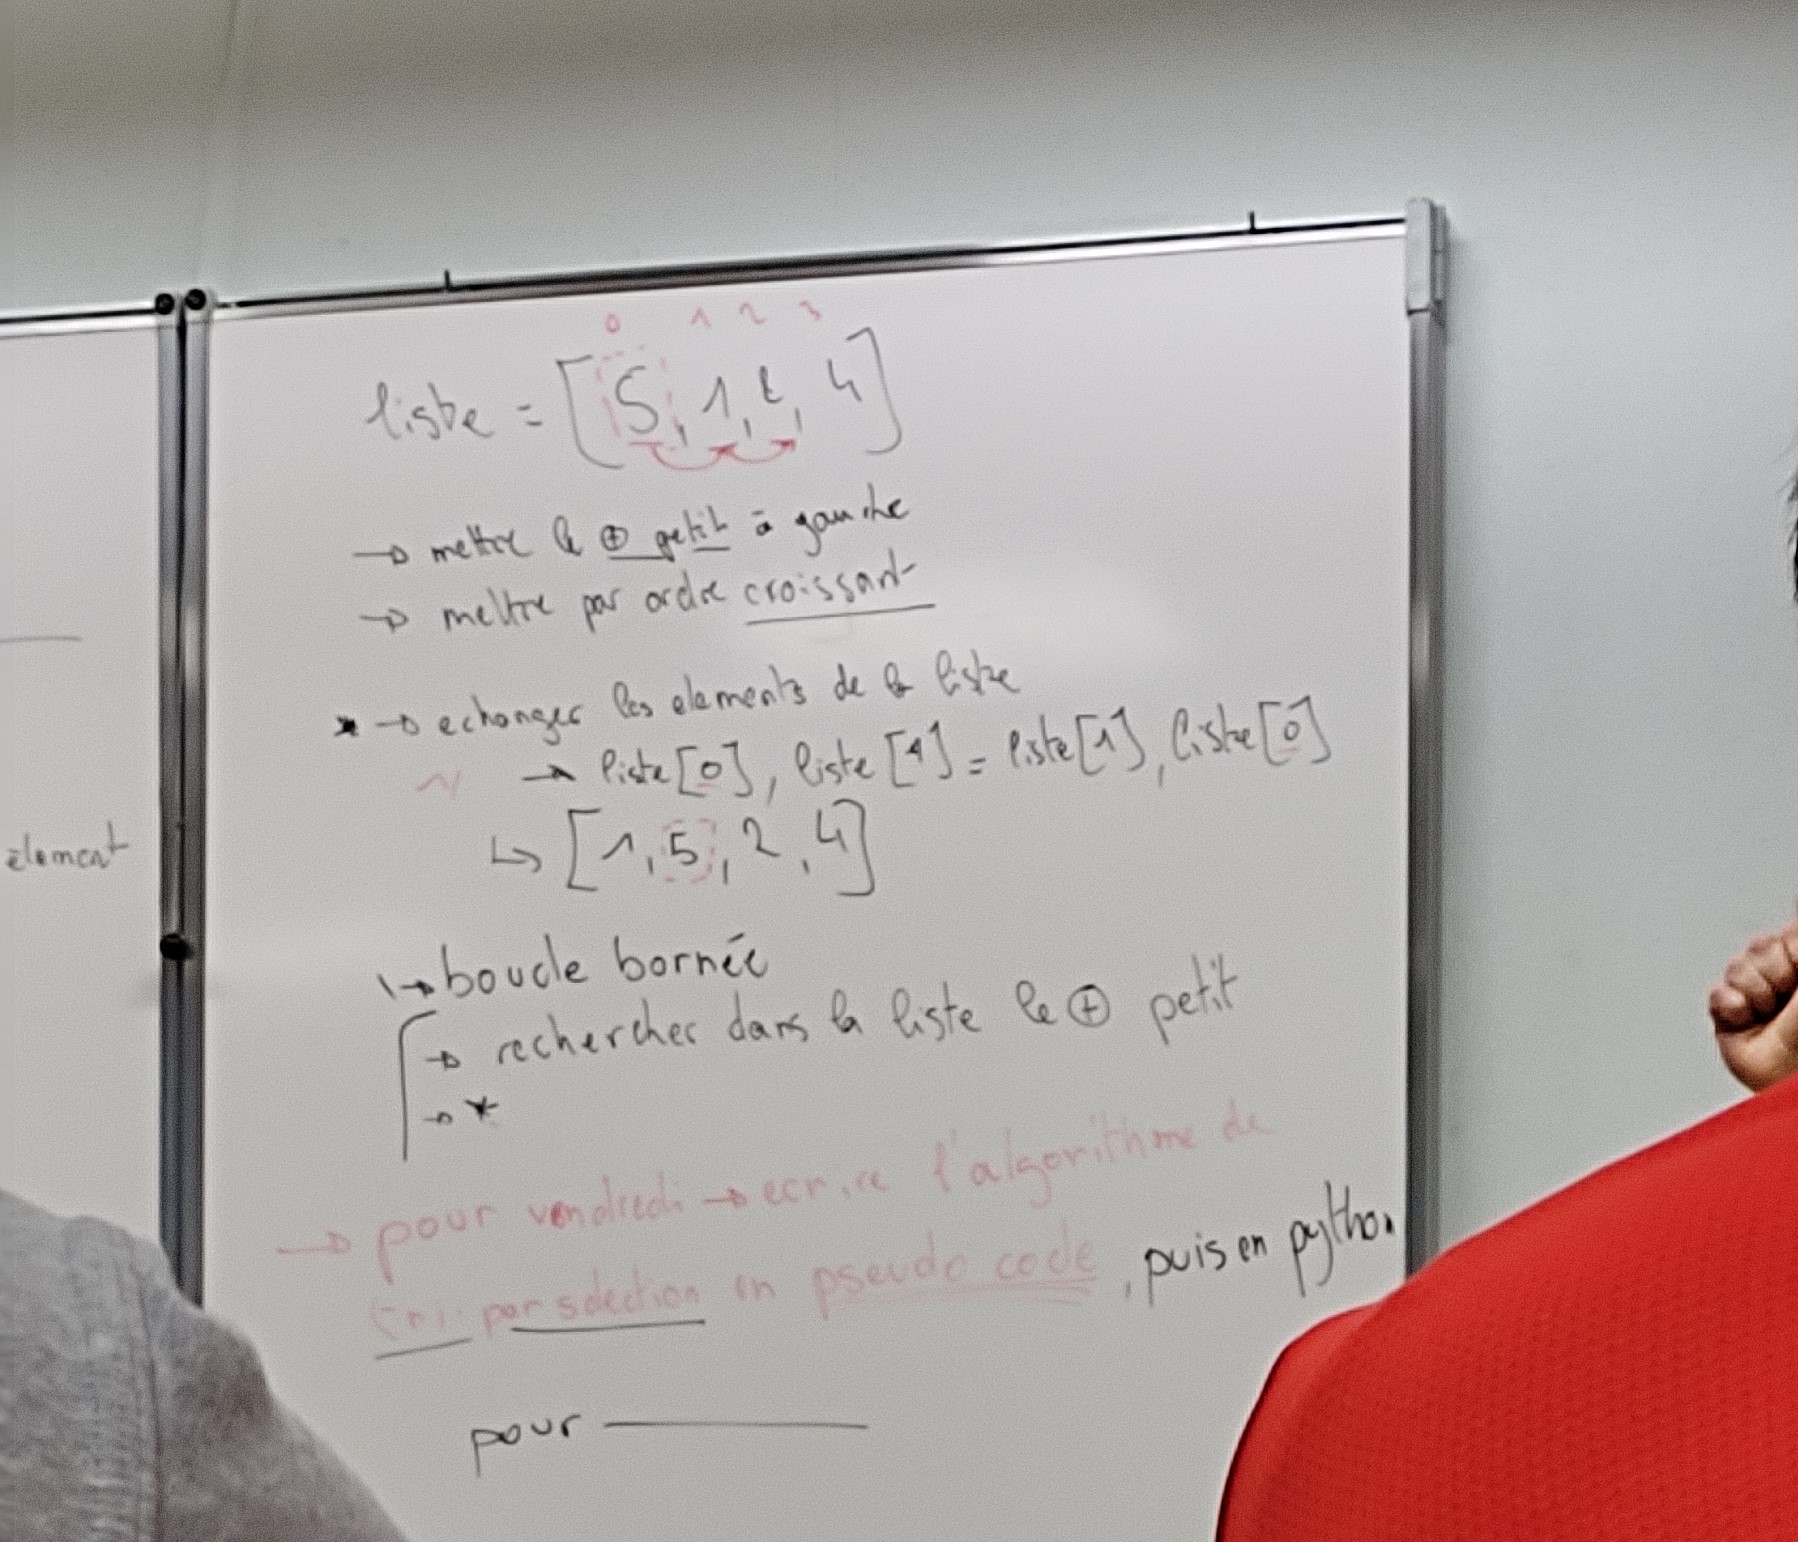 0 1 2 3
liste = [5, 1, 2, 4]
→ mettre le ⊕ petit à gauche
→ mettre par ordre croissant
* → echanger les elements de la liste
→ liste[0], liste[1] = liste[1], liste[0]
↳ [1, 5, 2, 4]
element
↳ boucle bornée
→ rechercher dans la liste le ⊕ petit
→ *
→ pour vendredi → ecrire l'algorithme de
tri par selection en pseudo code, puis en python
pour